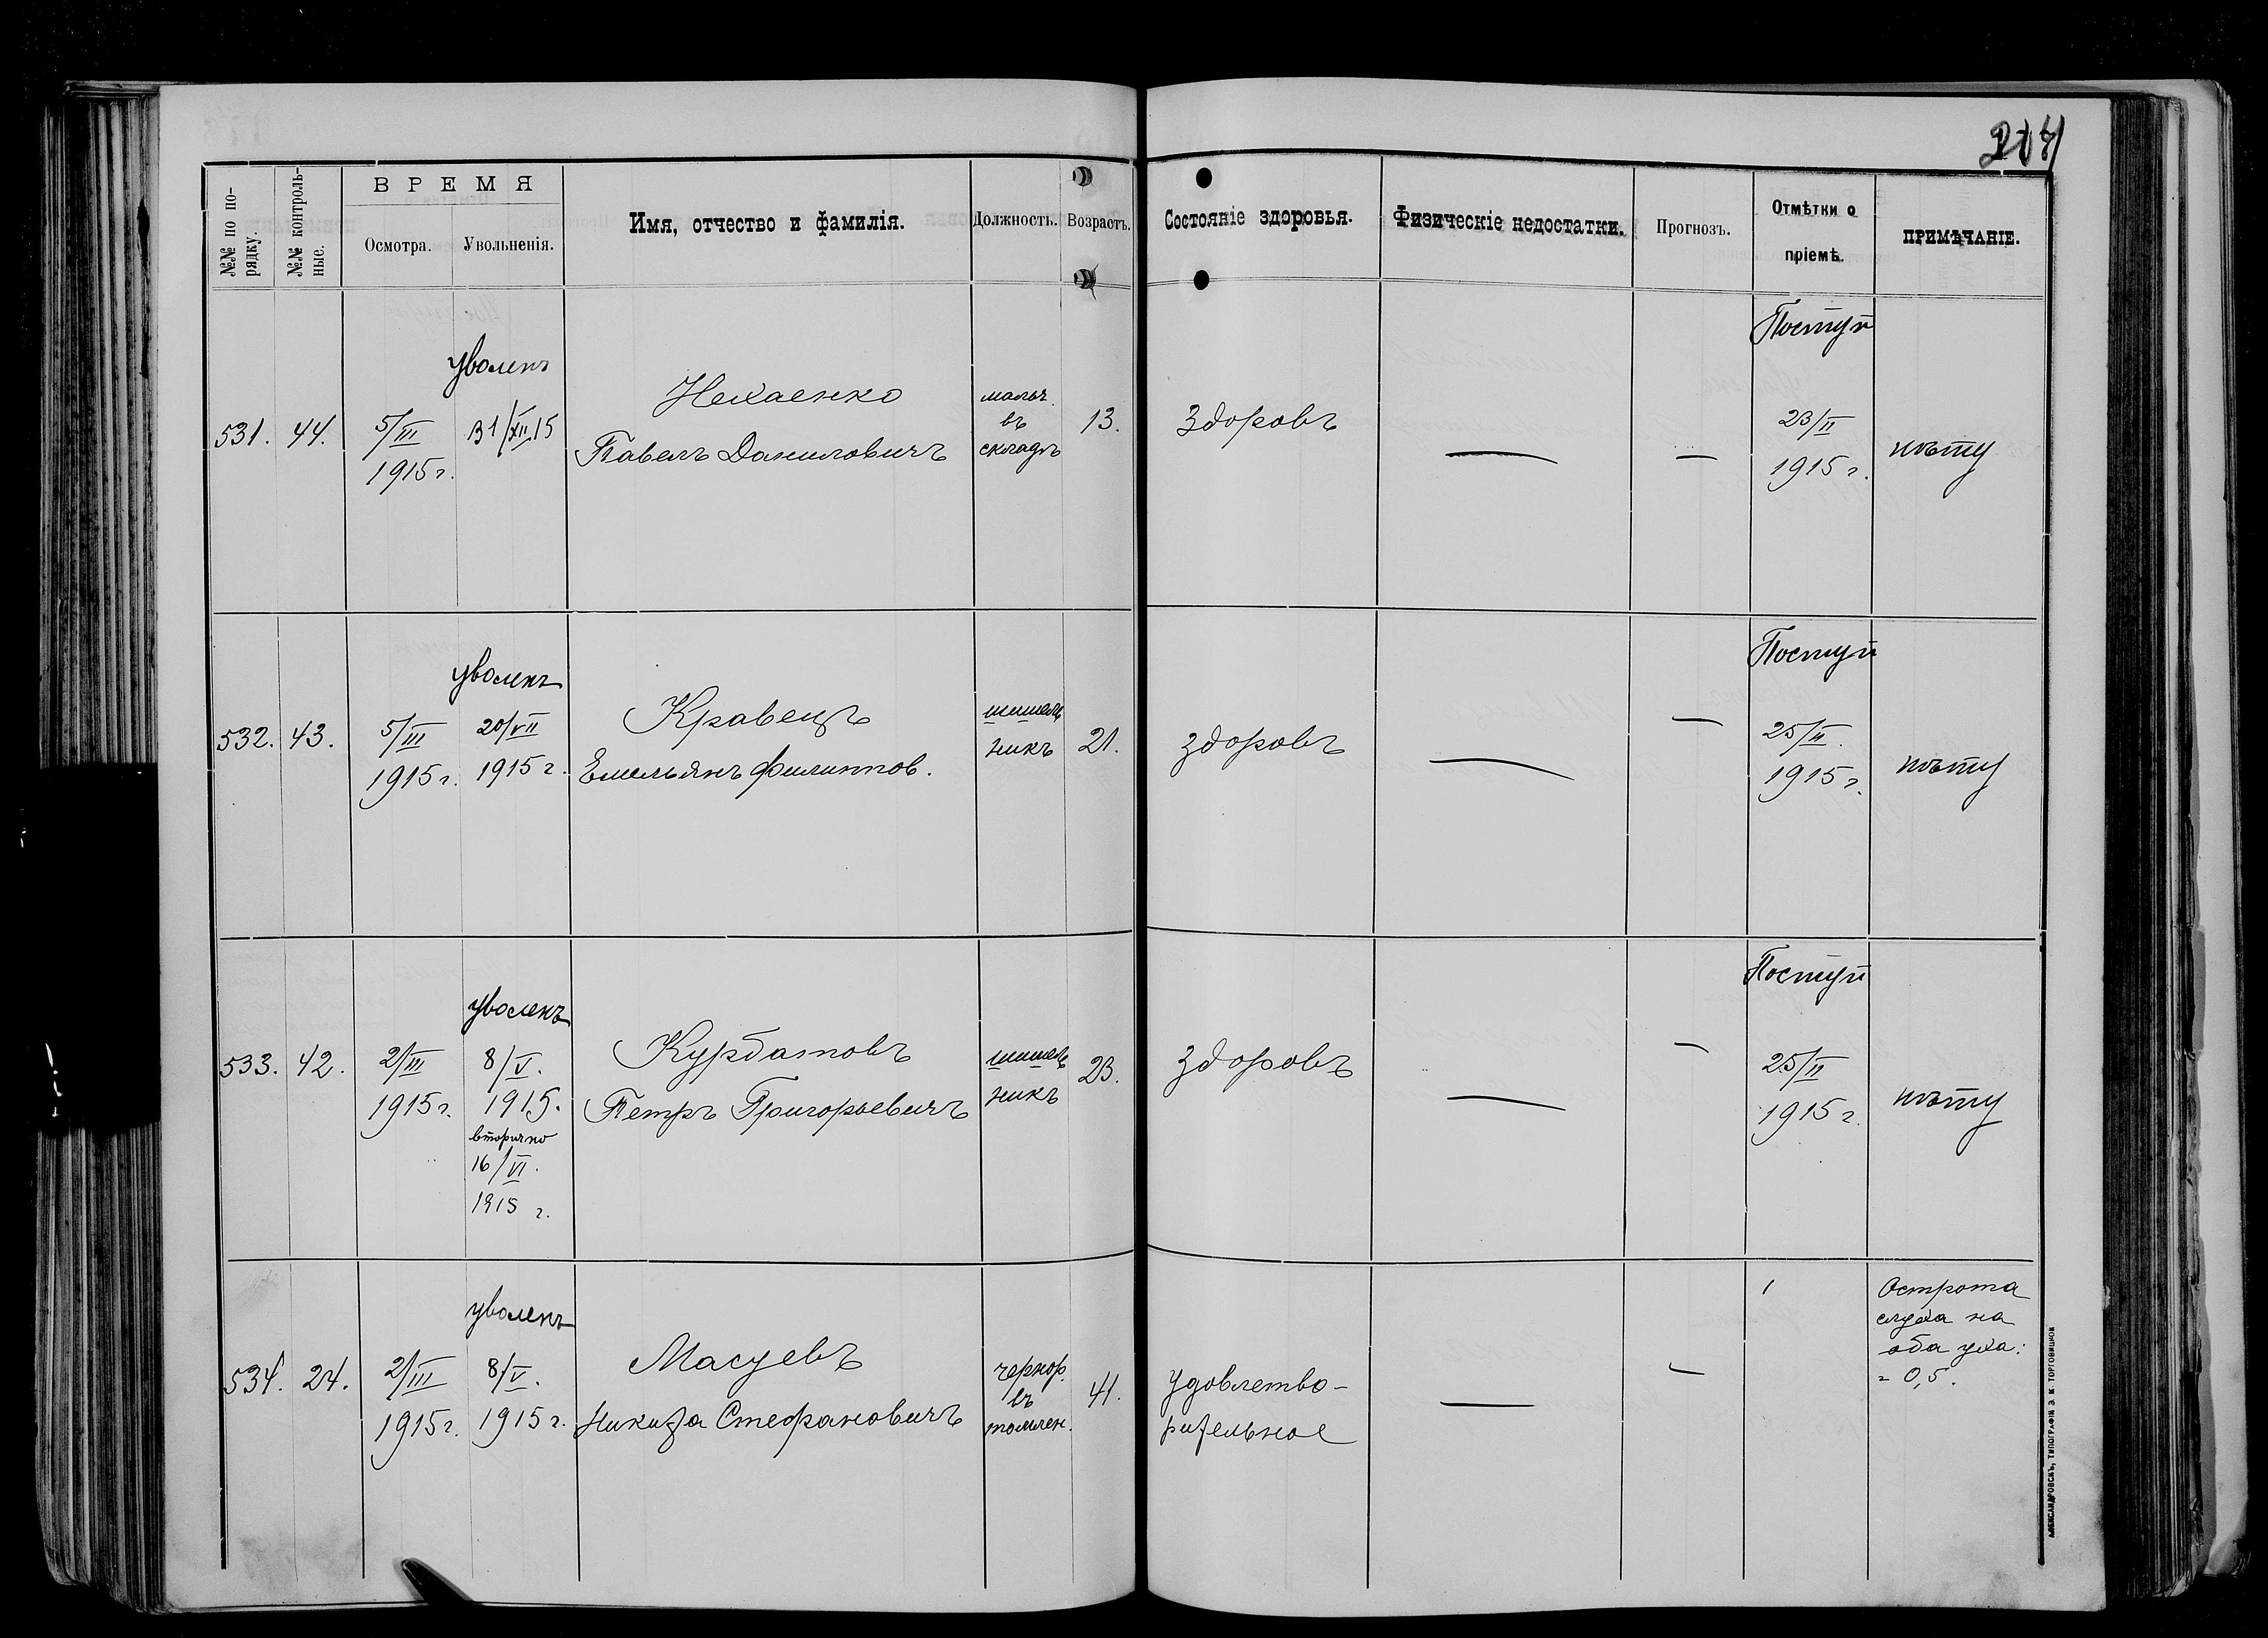 204
№№ по по-
рядку.
№№ контроль-
ные.
ВРЕМЯ
Осмотра.
Увольненія.
Имя, отчество и фамилія.
Должность.
Возрастъ.
Состояніе здоровья.
Физическіе недостатки.
Прогнозъ.
Отмѣтки о
пріемѣ.
ПРИМѢЧАНІЕ.
531.
44.
5/III
1915 г.
уволенъ
31/XII 15
Нехаенко
Павелъ Даниловичъ
мальч.
въ
складѣ
13.
Здоровъ
—
—
Поступ
23/II
1915 г.
нѣту
532.
43.
5/III
1915 г.
уволенъ
20/VII
1915 г.
Кравецъ
Емельянъ Филиппов.
шишель
никъ
21.
здоровъ
—
—
Поступ
25/II.
1915 г.
нѣту
533.
42.
2/III
1915 г.
уволенъ
8/V.
1915.
вторично
16/VI.
1915 г.
Курбатовъ
Петръ Григорьевичъ
шишель
никъ
23.
здоровъ
—
—
Поступ
25/II
1915 г.
нѣту
534.
24.
2/III
1915 г.
уволенъ
8/V.
1915 г.
Масуевъ
Никита Стефановичъ
чернор.
въ
41.
удовлетво-
рительное
—
—
Острота
слуха на
оба уха:
= 0,5.
АЛЕКСАНДРОВСКЪ, ТИПОГРАФІЯ Э. М. ТОРГОВИЦКОЙ